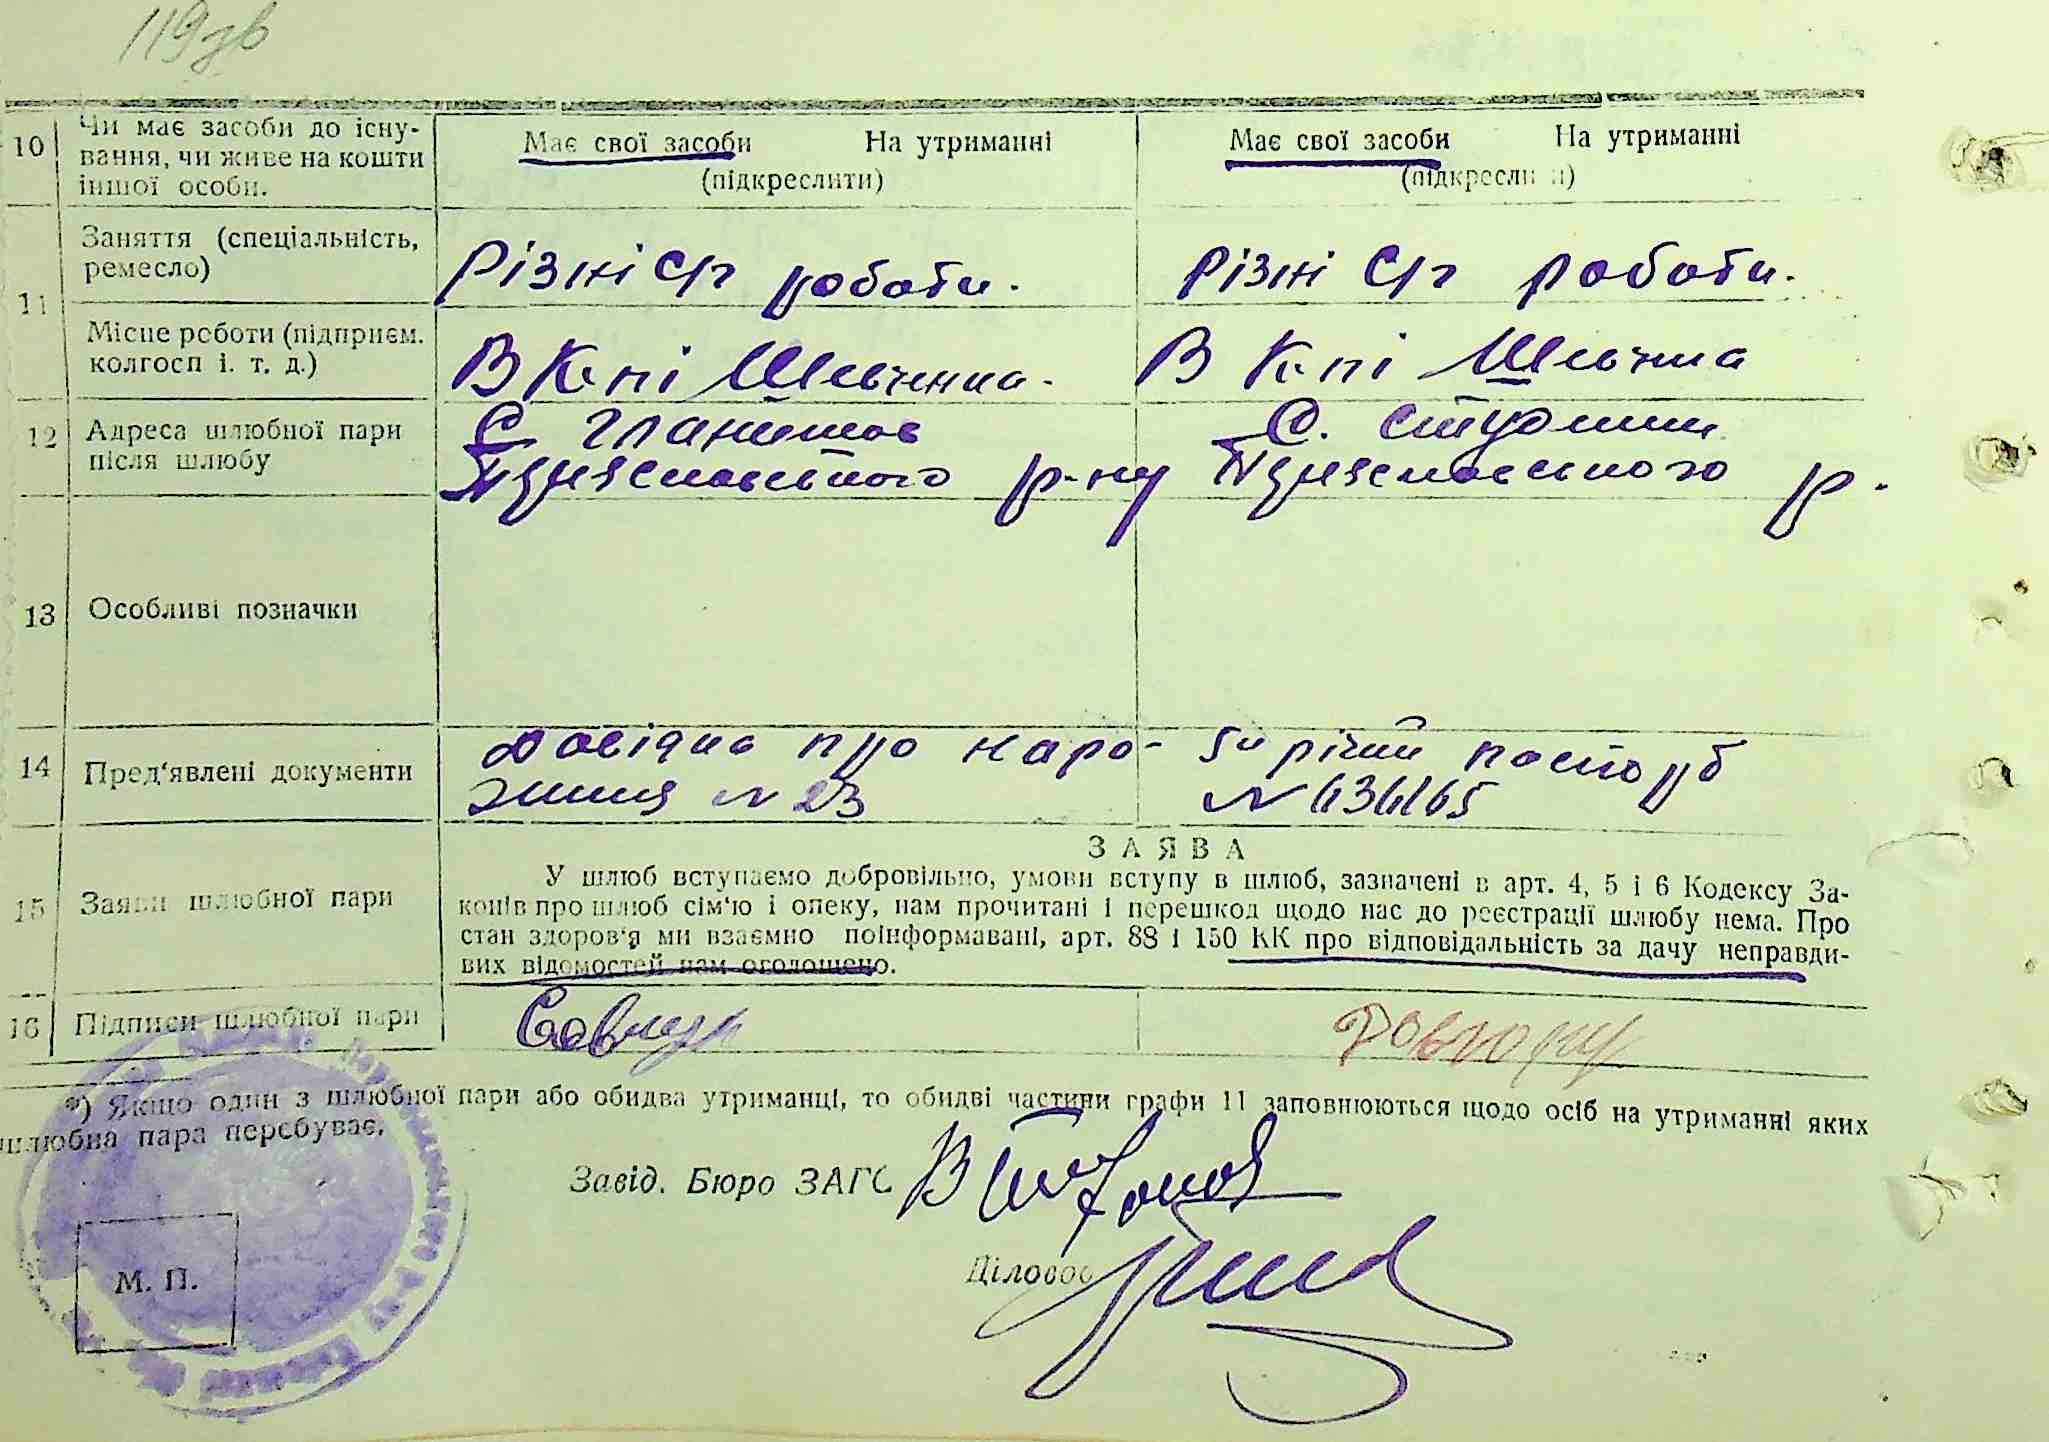 119зв
10 Чи має засоби до існу-
вання, чи живе на кошти
іншої особи.
Має свої засоби На утриманні
(підкреслити)
Має свої засоби На утриманні
(підкреслити)
11 Заняття (спеціальність,
ремесло)
Різні с/г роботи.
Різні с/г роботи.
Місце роботи (підприєм.
колгосп і. т. д.)
В К-пі Шевченка.
В К-пі Шевчка
12 Адреса шлюбної пари
після шлюбу
С.
р-ну
С.
р.
13 Особливі позначки
14 Пред'явлені документи
Довідка про наро-
ження №23
5и річний паспорт
№
15 Заяви шлюбної пари
ЗАЯВА
У шлюб вступаємо добровільно, умови вступу в шлюб, зазначені в арт. 4, 5 і 6 Кодексу За-
конів про шлюб сім'ю і опеку, нам прочитані і перешкод щодо нас до реєстрації шлюбу нема. Про
стан здоров'я ми взаємно поінформавані, арт. 88 і 150 КК про відповідальність за дачу неправди-
вих відомостей нам оголошено.
16 Підписи шлюбної пари
*) Якщо один з шлюбної пари або обидва утриманці, то обидві частини графи 11 заповнюються щодо осіб на утриманні яких
шлюбна пара перебуває.
Завід. Бюро ЗАГС
Діловод
М. П.